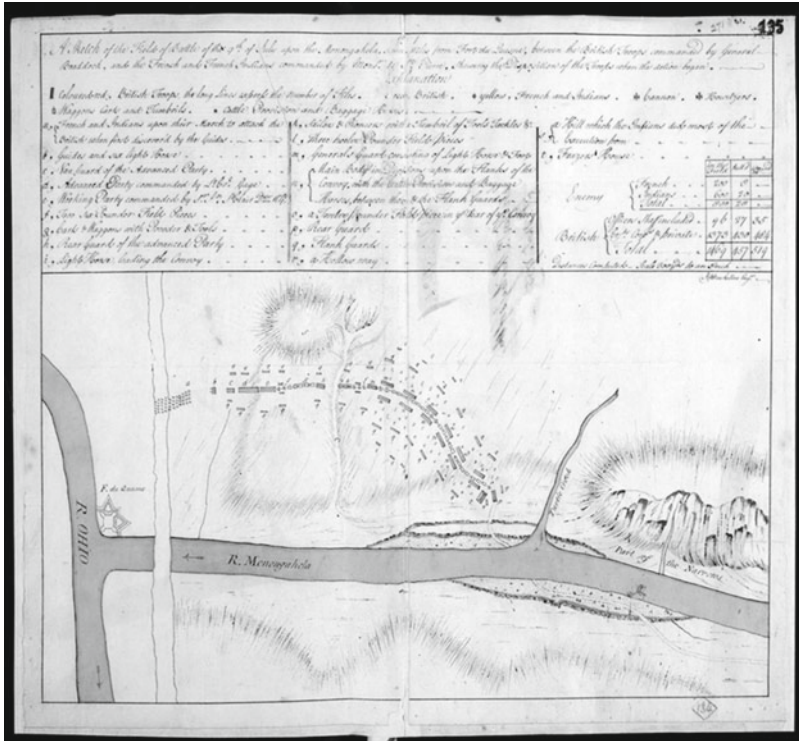 135
A Sketch of the Field of Battle of the 9th of July upon the Monongahela, seven miles from Fort du Quesne, between the British Troops commanded by General
Braddock, and the French and French Indians commanded by Monsr. de St. Pierre, shewing the Disposition of the Troops when the action began
Explanation
British Troops, the long Lines express the number of Files. red British. yellow, French and Indians. Cannon. Howitzers.
Waggons Carts and Tumbrils. Cattle Provisions and Baggage Horses
a, French and Indians upon their March to attack the
British when first discovered by the Guides
b, Guides and six light Horse
c, Van Guard of the Advanced Party
d, Advanced Party commanded by Lt. Col. Gage
e, Working Party commanded by Sr. Jn.
f, Two Six Pounder Field Pieces
g, Carts & Waggons with Powder & Tools
h, Rear Guard of the advanced Party
i, Light Horse leading the Convoy
k, Sailors & Pioneers with a Tumbril of Tools Tackles &c
l, Three twelve Pounder Field Pieces
m, Generals Guard consisting of Light Horse & Foot
n, Main Body upon the Flanks of the
Convoy, with the Cattle Provisions and Baggage
Horses, between them & the Flank Guards
o, a twelve Pounder Field Piece in ye. Rear of ye. Convoy
p, Rear Guard
q, Flank Guards
r, a Hollow way
s, a Hill which the Indians did most of the
Execution from
t, Frazers House
Enemy
French
Indians 600
Total
British
Officers Staff included 96
Total 1469 457 519
F. du Quesne
R. OHIO
R. Monongahela
Part of the Narrows